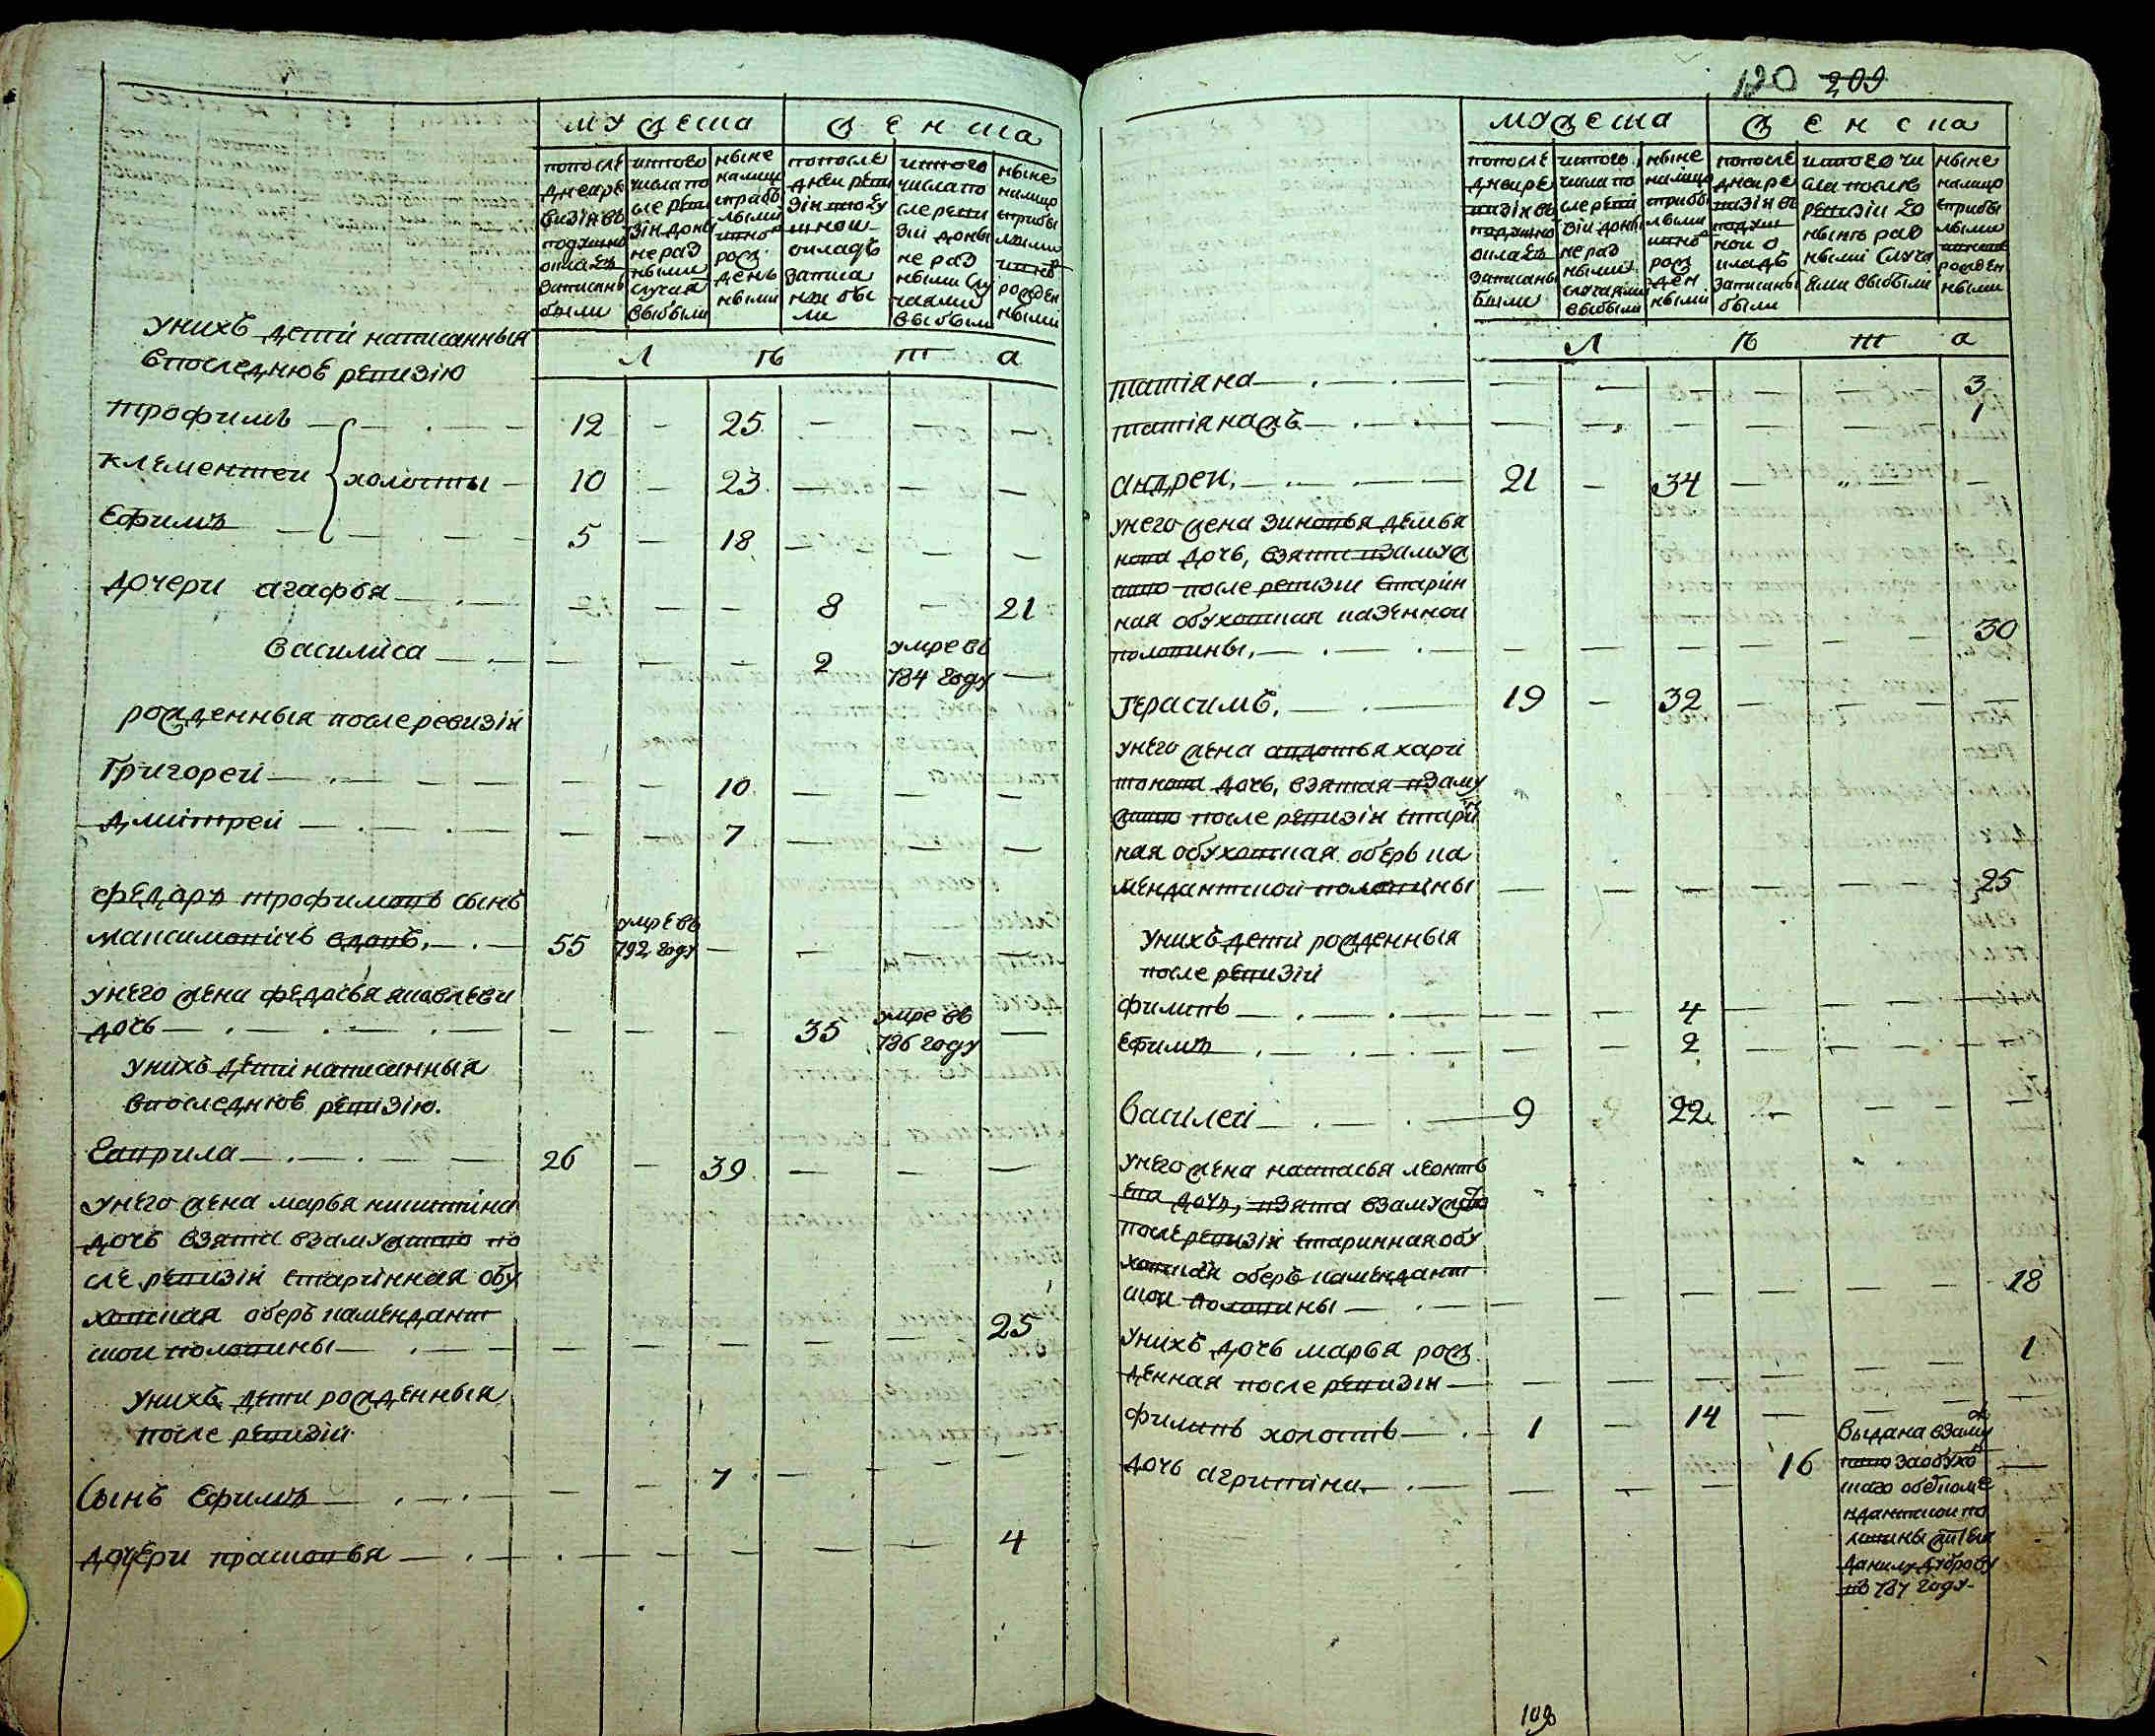 мужеска
женска
попосле
днеире
визіи въ
подушно
окладъ
записаны
были
ис того
числа по
сле реви
зіи доны
не раз
ными
случаи
выбыли
ныне
налицо
с прибы
лыми
и вно
рож
день
ными
попосле
днеи реви
зіи
оклады
записа
ны бы
ли
ис того
числа по
сле реви
зіи доны
не раз
ными слу
чаями
выбыли
ныне
налицо
с прибы
лыми
и вно
рожден
ными
л ѣ т а
у нихъ дети написанныя
в последнюѣ ревизію
Трофимъ — 12 — 25 — — —
Клементеи холосты — 10 — 23 — — —
Ефимъ — 5 — 18 — — —
дочери агафья — — — 8 — 21
василиса — — — 2 умре въ 784 году —
рожденныя после ревизіи
Григореи — — — 10 — — —
Дмитреи — — — 7 — — —
Федаръ трофимовъ сынъ
максимовичь вдовъ, — 55 умре въ 792 году — — — —
у него жена федосья яковлева
дочь — — — — 35 умре въ 786 году —
у нихъ дети написанныя
в последнюѣ ревизію.
Гаврила — 26 — 39 — — —
у него жена марья никитина
дочь взята взамужство по
сле ревизіи старинная обу
ховская оберъ камендант
скои половины — — — — — — 25
у нихъ дети рожденныя
после ревизіи
Сынъ Ефимъ — — — 7 — — —
дочери прасковья — — — — — — 4
120 209
мужеска
женска
попосле
днеире
визіи въ
подушно
окладъ
записаны
были
ис того
числа по
сле реви
зіи доны
не раз
ными
случаями
выбыли
ныне
налицо
с прибы
лыми
и вно
рож
ден
ными
попосле
днеире
визіи въ
подуш
ной о
кладъ
записаны
были
ис того чи
сла после
ревизіи до
нынь раз
ными случа
ями выбыли
ныне
налицо
с прибы
лыми
и вно
рожден
ными
л ѣ т а
татіяна — — — — — — 3
татіяна жъ — — — — — — 1
андреи, — 21 — 34 — — —
у него жена зиновья демья
нова дочь, взята взамуж
ство после ревизіи старин
ная обуховская казеннои
половины, — — — — — — 30
герасимъ, — 19 — 32 — — —
у него жена авдотья хари
тонова дочь, взятая взаму
жство после ревизіи старин
ная обуховская оберъ ка
мендантскои половины — — — — — — 25
у нихъ дети рожденныя
после ревизіи
филипъ — — — 4 — — —
Ефимъ — — — 2 — — —
Василеи — 9 — 22 — — —
у него жена настасья леонть
ева дочь, взята взамужство
после ревизіи старинная обу
ховская оберъ каменданд
скои половины — — — — — — 18
у нихъ дочь марья рож
денная после ревизіи — — — — — — 1
филипъ холостъ — 1 — 14 — — —
дочь агрипина — — — — 16 —
выдана взаму
жство за обухо
скаго обѣркоме
ндантскои по
ловины жителя
данилу дуброву
въ 787 году
109